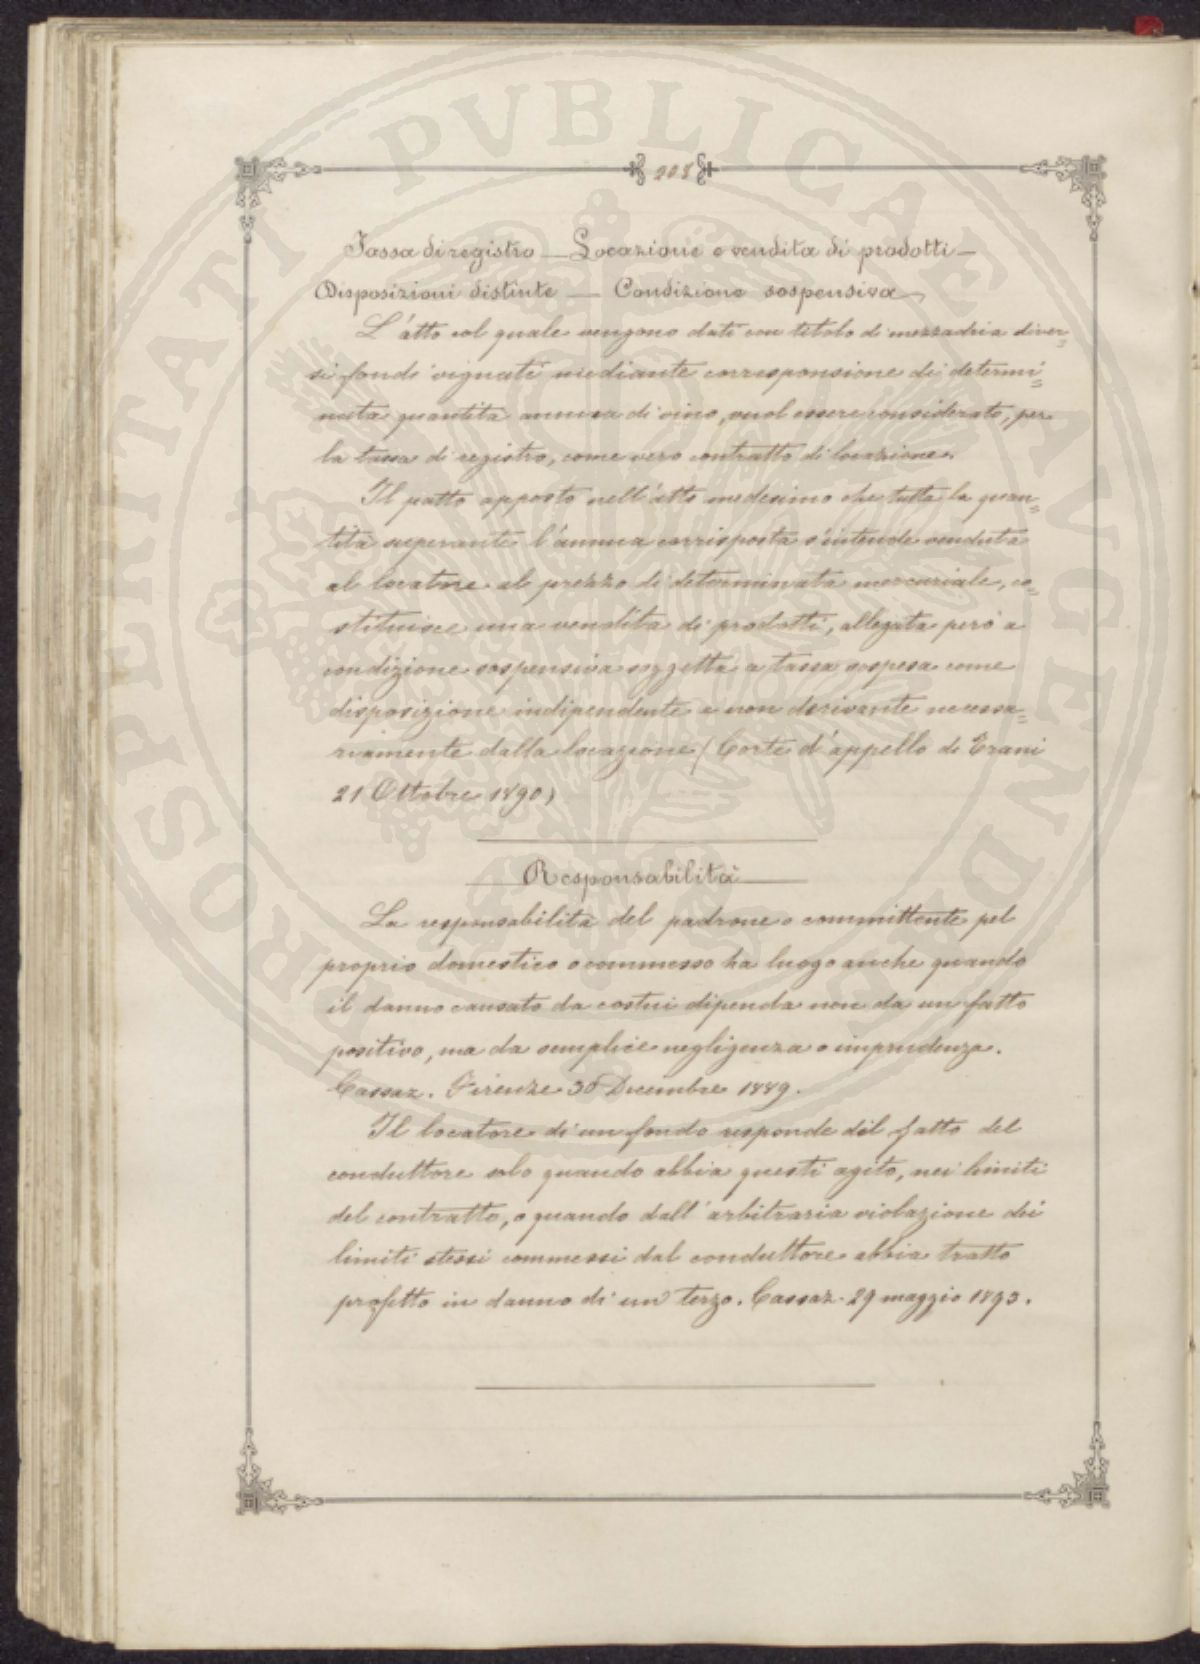 PROSPERITATI PVBLICAE AVGENDAE
208
Tassa di registro — Locazione e vendita di prodotti —
Disposizioni distinte — Condizione sospensiva —
L'atto col quale vengono dati con titolo di mezzadria diver=
si fondi vignati mediante corresponsione di determi=
nata quantità annua di vino, vuol essere considerato, per
la tassa di registro, come vero contratto di locazione.
Il patto apposto nell'atto medesimo che tutta la quan=
tità superante l'annua corrisposta s'intende venduta
al locatore al prezzo di determinata mercuriale, co=
stituisce una vendita di prodotti, allegata però a
condizione sospensiva soggetta a tassa sospesa come
disposizione indipendente e non derivante necessa=
riamente dalla locazione (Corte d'appello di Trani
21 Ottobre 1890)
Responsabilità
La responsabilità del padrone o committente pel
proprio domestico o commesso ha luogo anche quando
il danno causato da costui dipenda non da un fatto
positivo, ma da semplice negligenza o imprudenza.
Cassaz. Firenze 30 Dicembre 1889.
Il locatore di un fondo responde del fatto del
conduttore solo quando abbia questi agito, nei limiti
del contratto, o quando dall'arbitraria violazione dei
limiti stessi commessi dal conduttore abbia tratto
profitto in danno di un terzo. Cassaz. 29 maggio 1893.